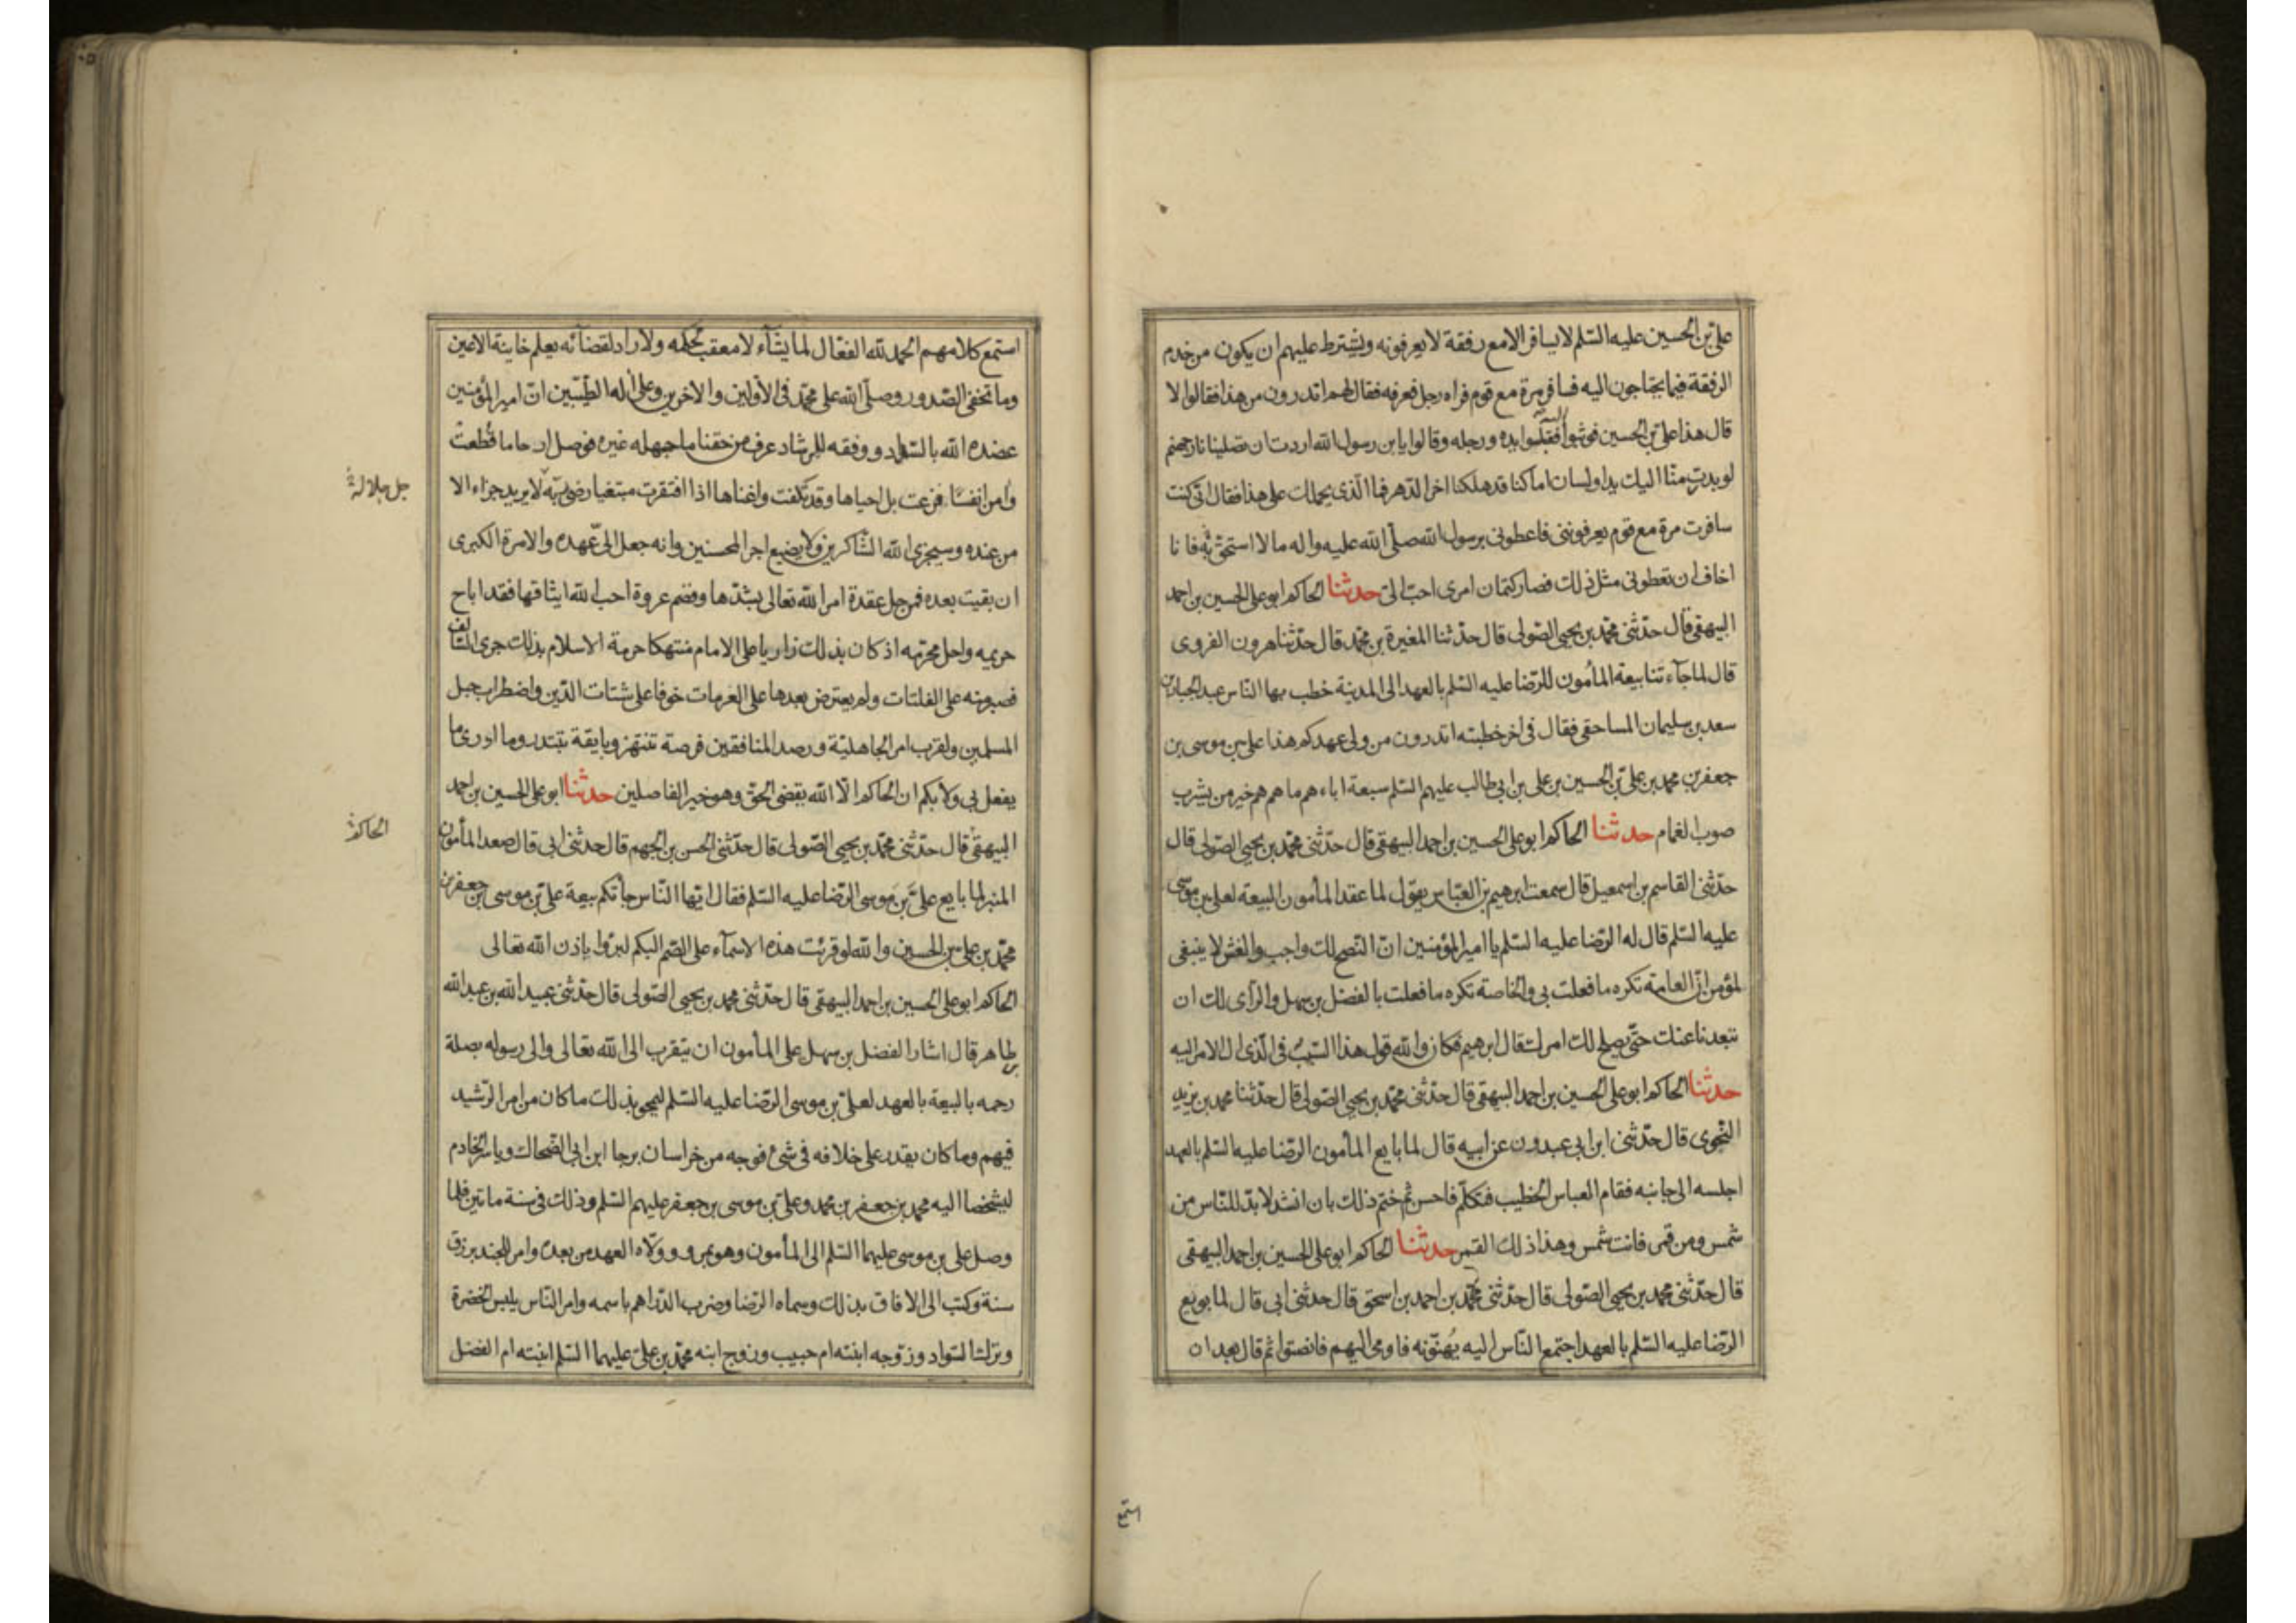 علي بن الحسين عليه السّلم لا يسافر الا مع رفقة لا يعرفونه ويشترط عليهم ان يكون من خدم
الرفقة فيما يحتاجون اليه فسافر مرة مع قوم فراه رجل فعرفه فقال لهم اتدرون من هذا فقالوا لا
قال هذا علي بن الحسين فوثبوا اليه فقبّلوا يده ورجله وقالوا يا بن رسول الله اردت ان تصلينا نار جهنم
لو بدرت منّا اليك يد او لسان اما كنا قد هلكنا اخر الدهر فما الّذي يحملك على هذا فقال انّى كنت
سافرت مرة مع قوم يعرفوننى فاعطونى برسول الله صلّى الله عليه واله ما لا استحق به فانا
اخاف ان تعطونى مثل ذلك فصار كتمان امرى احبّ الىّ حدثنا الحاكم ابو على الحسين بن احمد
البيهقى قال حدّثنى محمّد بن يحيى الصّولى قال حدّثنا المغيرة بن محمّد قال حدّثنا هرون الفروى
قال لما جآءتنا بيعة المأمون للرّضا عليه السّلم بالعهد الى المدينة خطب بها النّاس عبد الجبار بن
سعد بن سليمان المساحقى فقال فى اخر خطبته اتدرون من ولى عهدكم هذا على بن موسى بن
جعفر بن محمد بن على بن الحسين بن على بن ابى طالب عليهم السّلم سبعة اباءهم ما هم هم خير من يشرب
صوب الغمام حدثنا الحاكم ابو على الحسين بن احمد البيهقى قال حدّثنى محمّد بن يحيى الصّولى قال
حدّثنى القاسم بن اسمعيل قال سمعت ابرهيم بن العبّاس يقول لما عقد المأمون البيعة لعلى بن موسى
عليه السّلم قال له الرّضا عليه السّلم يا امير المؤمنين انّ النّصح لك واجب والغش لا ينبغى
لمؤمن انّ العامة تكره ما فعلت بى والخاصة تكره ما فعلت بالفضل بن سهل والرّأى لك ان
تبعدنا عنك حتّى يصلح لك امرك قال ابرهيم فكان والله قوله هذا السّبب فى الّذى ال الامر اليه
حدثنا الحاكم ابو على الحسين بن احمد البيهقى قال حدّثنى محمّد بن يحيى الصّولى قال حدّثنا محمد بن يزيد
النّحوى قال حدّثنى ابن ابى عبدون عن ابيه قال لما بايع المأمون الرّضا عليه السّلم بالعهد
اجلسه الى جانبه فقام العباس الخطيب فتكلّم فاحسن ثم ختم ذلك بان انشد لا بدّ للنّاس من
شمس ومن قمر فانت شمس وهذا ذلك القمر حدثنا الحاكم ابو على الحسين بن احمد البيهقى
قال حدّثنى محمد بن يحيى الصّولى قال حدّثنى محمّد بن احمد بن اسحق قال حدثنى ابى قال لما بويع
الرّضا عليه السّلم بالعهد اجتمع النّاس اليه يُهنّونه فاومى اليهم فانصتوا ثم قال بعد ان
استمع
استمع كلامهم الحمد لله الفعّال لما يشآء لا معقب لحكمه ولا رادّ لقضآئه يعلم خاينة الاعين
وما تخفى الصّدور وصلّى الله على محمّد فى الاوّلين والاخرين وعلى اله الطّيّبين انّ امير المؤمنين
عضده الله بالسّداد ووفقه للرشاد عرف من حقنا ما جهله غيره فوصل ارحاما قُطعتْ
وامن انفسًا فزعت بل احياها وقد تلفت واغناها اذا افتقرت مبتغيا رضى ربّه لا يريد جزاء الا
جل جلاله
من عنده وسيجزى الله الشّاكرين ولا يضيع اجر المحسنين وانه جعل الىّ عهده والامرة الكبرى
ان بقيت بعده فمن حل عقدة امر الله تعالى بشدّها وفصم عروة احب الله ايثاقها فقد اباح
حريمه واحل محرّمه اذ كان بذلك زاريا على الامام منتهكا حرمة الاسلام بذلك جرى السّالف
فصبر منه على الفلتات ولم يعترض بعدها على العزمات خوفا على شتات الدّين واضطراب حبل
المسلمين ولقرب امر الجاهليّة ورصد المنافقين فرصة تنتهز وبايقة تبتدر وما ادرى ما
يفعل بى ولا بكم ان الحاكم الّا الله يقضى الحق وهو خير الفاصلين حدثنا ابو على الحسين بن احمد
الحاكم
البيهقى قال حدّثنى محمّد بن يحيى الصّولى قال حدّثنى الحسن بن الجهم قال حدثنى ابى قال صعد المأمون
المنبر لما بايع على بن موسى الرّضا عليه السّلم فقال ايّها النّاس جأتكم بيعة على بن موسى بن جعفر بن
محمّد بن على بن الحسين والله لو قرئت هذه الاسمآء على الصّم البكم لبرؤا باذن الله تعالى
الحاكم ابو على الحسين بن احمد البيهقى قال حدّثنى محمد بن يحيى الصّولى قال حدّثنى عبيد الله بن عبد الله
بن طاهر قال اشار الفضل بن سهل على المأمون ان يتقرب الى الله تعالى والى رسوله بصلة
رحمه بالبيعة بالعهد لعلى بن موسى الرّضا عليه السّلم ليمحو بذلك ما كان من امر الرّشيد
فيهم وما كان يقدر على خلافه فى شئ فوجه من خراسان برجا ابن ابى الضّحاك وياسر الخادم
ليشخصا اليه محمد بن جعفر بن محمد وعلى بن موسى بن جعفر عليهم السّلم وذلك فى سنة مائتين فلما
وصل على بن موسى عليهما السّلم الى المأمون وهو بمرو وولّاه العهد من بعده وامر للجند برزق
سنة وكتب الى الافاق بذلك وسماه الرّضا وضرب الدّراهم باسمه وامر النّاس بلبس الخضرة
وترك السّواد وزوّجه ابنته ام حبيب وزوج ابنه محمّد بن على عليهما السّلم ابنته ام الفضل